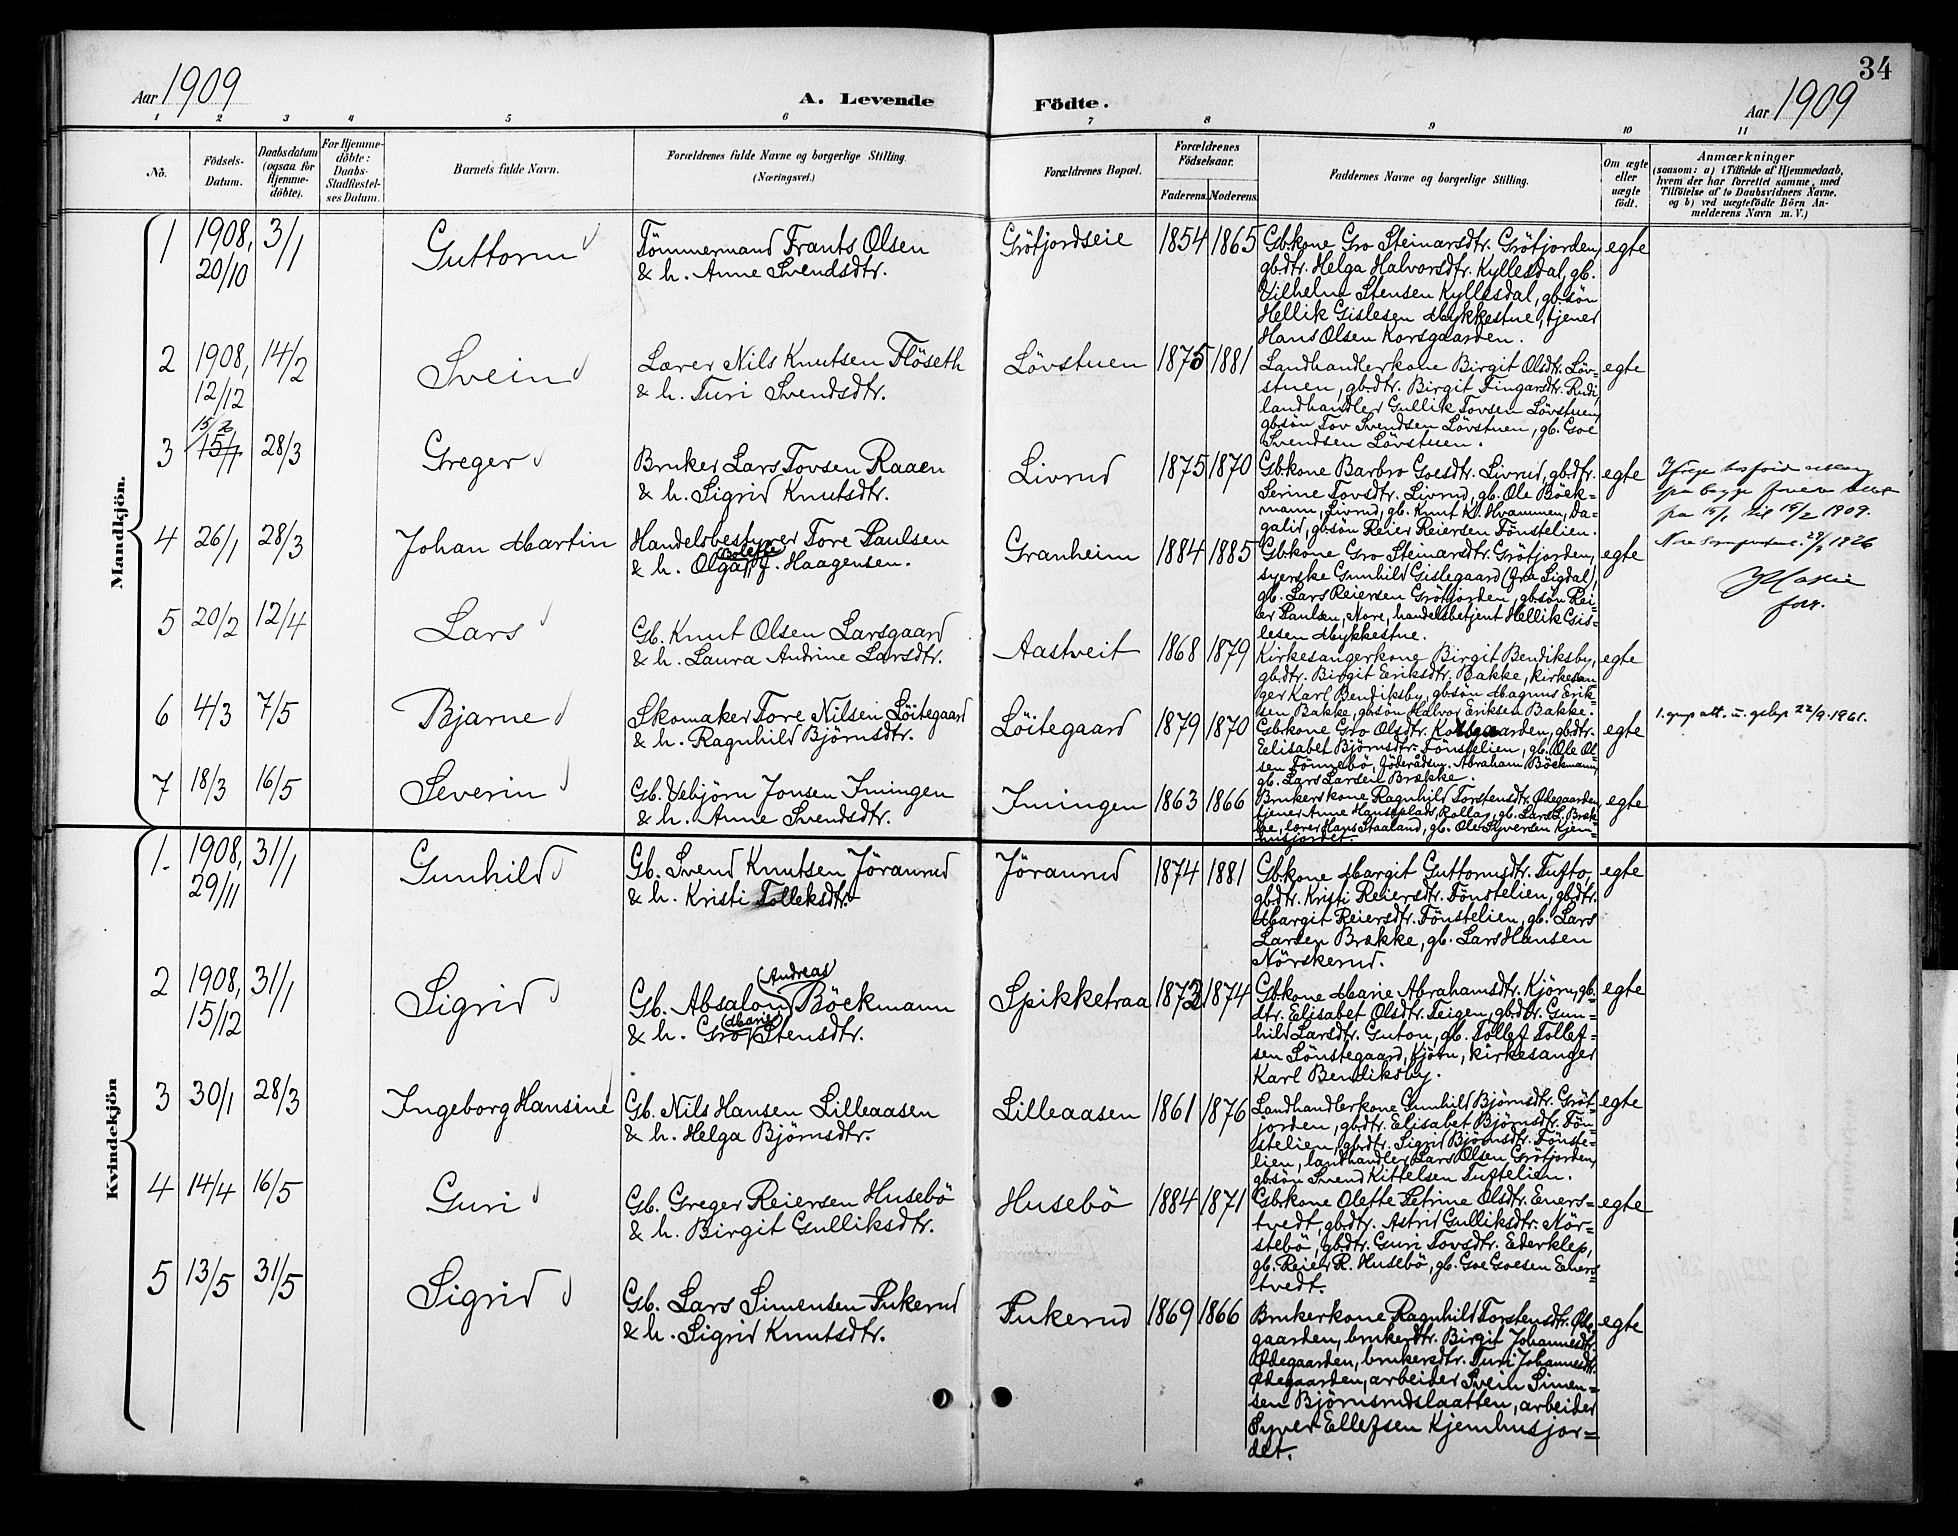 34
Aar 1909
A. Levende Födte.
Aar 1909
1 2 3 4 5 6 7 8 9 10 11
No.
Födsels-
Datum.
Daabsdatum
(ogsaa for
Hjemme-
döbte).
For Hjemme-
döbte:
Daabs-
Stadfæstel-
ses Datum.
Barnets fulde Navn.
Forældrenes fulde Navne og borgerlige Stilling.
(Næringsvei.)
Forældrenes Bopæl.
Forældrenes
Födselsaar.
Faderens. Moderens.
Faddernes Navne og borgerlige Stilling.
Om ægte
eller
uægte
födt.
Anmærkninger
(saasom: a) i Tilfælde af Hjemmedaab,
hvem der har forrettet samme, med
Tilföielse af to Daabsvidners Navne.
og b) ved uægtefödte Börn An-
melderens Navn m. V.)
Mandkjön.
1
1908,
20/10
3/1
Guttorm
Tömmermand Frants Olsen
& h. Anne Svendsdtr.
Gröfjordseie
1854 1865
Gb.kone Gro Steinarsdtr. Gröfjorden,
gb.dtr. Helga Halvorsdtr. Kyllesdal, gb.
Vilhelm Stensen Kyllesdal, gb.sön
Hellik Gislesen Mykkestue, tjener
Hans Olsen Korsgaarden.
egte
2
1908,
12/12
14/2
Svein
Lærer Nils Knutsen Flöseth
& h. Turi Svendsdtr.
Lövstuen
1875 1881
Landhandlerkone Birgit Olsdtr. Löv-
stuen, gb.dtr. Birgit Fingarsdtr. Rudi,
landhandler Gullik Tovsen Lövstuen,
gb.sön Tov Svendsen Lövstuen, gb. Goe
Svendsen Lövstuen.
egte
3
15/2
15/1
28/3
Greger
Bruker Lars Tovsen Raaen
& h. Sigrid Knutsdtr.
Livrud
1875 1870
Gb.kone Barbro Goesdtr. Livrud, gb.dtr.
Serine Tovsdtr. Livrud, gb. Ole Böck-
mann, Livrud, gb. Knut K. Hvammen, Da-
galid, gb.sön Reier Reiersen Fönstelien.
egte
fra 15/1 til 15/2 1909.
4
26/1
28/3
Johan Martin
Handelsbestyrer Tore Paulsen
Bolette
& h. Olga J. Haagensen.
Granheim
1884 1885
Gb.kone Gro Steinarsdtr. Gröfjorden,
syerske Gunhild Gislegaard (fra Sigdal),
gb. Lars Reiersen Gröfjorden, gb.sön Rei-
er Paulsen, Nore, handelsbetjent Hellik Gis-
lesen Mykkestue.
egte
5
20/2
12/4
Lars
Gb. Knut Olsen Larsgaard
& h. Laura Andrine Larsdtr.
Aastveit
1868 1879
Kirkesangerkone Birgit Bendiksby,
gb.dtr. Birgit Eriksdtr. Bakke, kirkesan-
ger Karl Bendiksby, gb.sön Magnus Erik-
sen Bakke, gb.sön Halvor Eriksen Bakke.
egte
6
4/3
7/5
Bjarne
Skomaker Tore Nilsen Löitegaard
& h. Ragnhild Björnsdtr.
Löitegaard
1879 1870
Gb.kone Gro Olsdtr. Korsgaarden, gb.dtr.
Elisabet Björnsdtr. Fönstelien, gb. Ole Ol-
sen Fönnebö, Abraham Böckmann,
gb. Lars Larsen Brække.
egte
22/9-1961.
7
18/3
16/5
Severin
Gb. Vebjörn Jonsen Imingen
& h. Anne Svendsdtr.
Imingen
1863 1866
Brukerskone Ragnhild Torstensdtr. Ødegaarden,
tjener Anne Hanseplads, Rolla, gb. Lars L. Bræk-
ke, lærer Hans Staaland, gb. Ole Syversen Kjem-
husjordet.
egte
Kvindekjön
1.
1908,
29/11
31/1
Gunhild
Gb. Svend Knutsen Jöranrud
& h. Kristi Tolleksdtr.
Jöranrud
1874 1881
Gb.kone Margit Guttormsdtr. Tufto,
gb.dtr. Kristi Reiersdtr. Fönstelien, gb.dtr.
Margit Reiersdtr. Fönstelien, gb. Lars
Larsen Brække, gb. Lars Hansen
Nörskerud.
egte
2
1908,
15/12
31/1
Sigrid
Andreas
Gb. Absalon Böckmann
Marie
& h. Gro Stensdtr.
Spikketraa
1872 1874
Gb.kone Marie Abrahamsdtr. Kjörn, gb.
dtr. Elisabet Olsdtr. Teigen, gb.dtr. Gun-
hild Larsdtr. Guton, gb. Tollef Tollef-
sen Sönstegaard, Kjörn, kirkesanger
Karl Bendiksby.
egte
3
30/1
28/3
Ingeborg Hansine
Gb. Nils Hansen Lilleaasen
& h. Helga Björnsdtr.
Lilleaasen
1861 1876
Landhandlerkone Gunhild Björnsdtr. Gröf-
jorden, gb.dtr. Elisabet Björnsdtr. Fön-
stelien, gb.dtr. Sigrid Björnsdtr. Fönste-
lien, landhandler Lars Olsen Gröfjorden,
gb.sön Svend Kittelsen Tuftelien.
egte
4
14/4
16/5
Guri
Gb. Greger Reiersen Husebö
& h. Birgit Gulliksdtr.
Husebö
1884 1871
Gb.kone Olette Petrine Olsdtr. Eners-
tvedt, gb.dtr. Astrid Gulliksdtr. Nör-
stebö, gb.dtr. Guri Tovsdtr. Ederklep,
gb. Reier R. Husebö, gb. Goe Goesen Eners-
tvedt.
egte
5
13/5
31/5
Sigrid
Gb. Lars Simensen Pukerud
& h. Sigrid Knutsdtr.
Pukerud
1869 1866
Brukerkone Ragnhild Torstensdtr. Øde-
gaarden, brukerdtr. Birgit Johannesdtr.
Ødegaarden, brukersdtr. Turi Johannesdtr.
Ødegaarden, arbeider Svein Simen-
sen Björnsrudslaatten, arbeider
Syver Ellefsen Kjemhusjor-
det.
egte